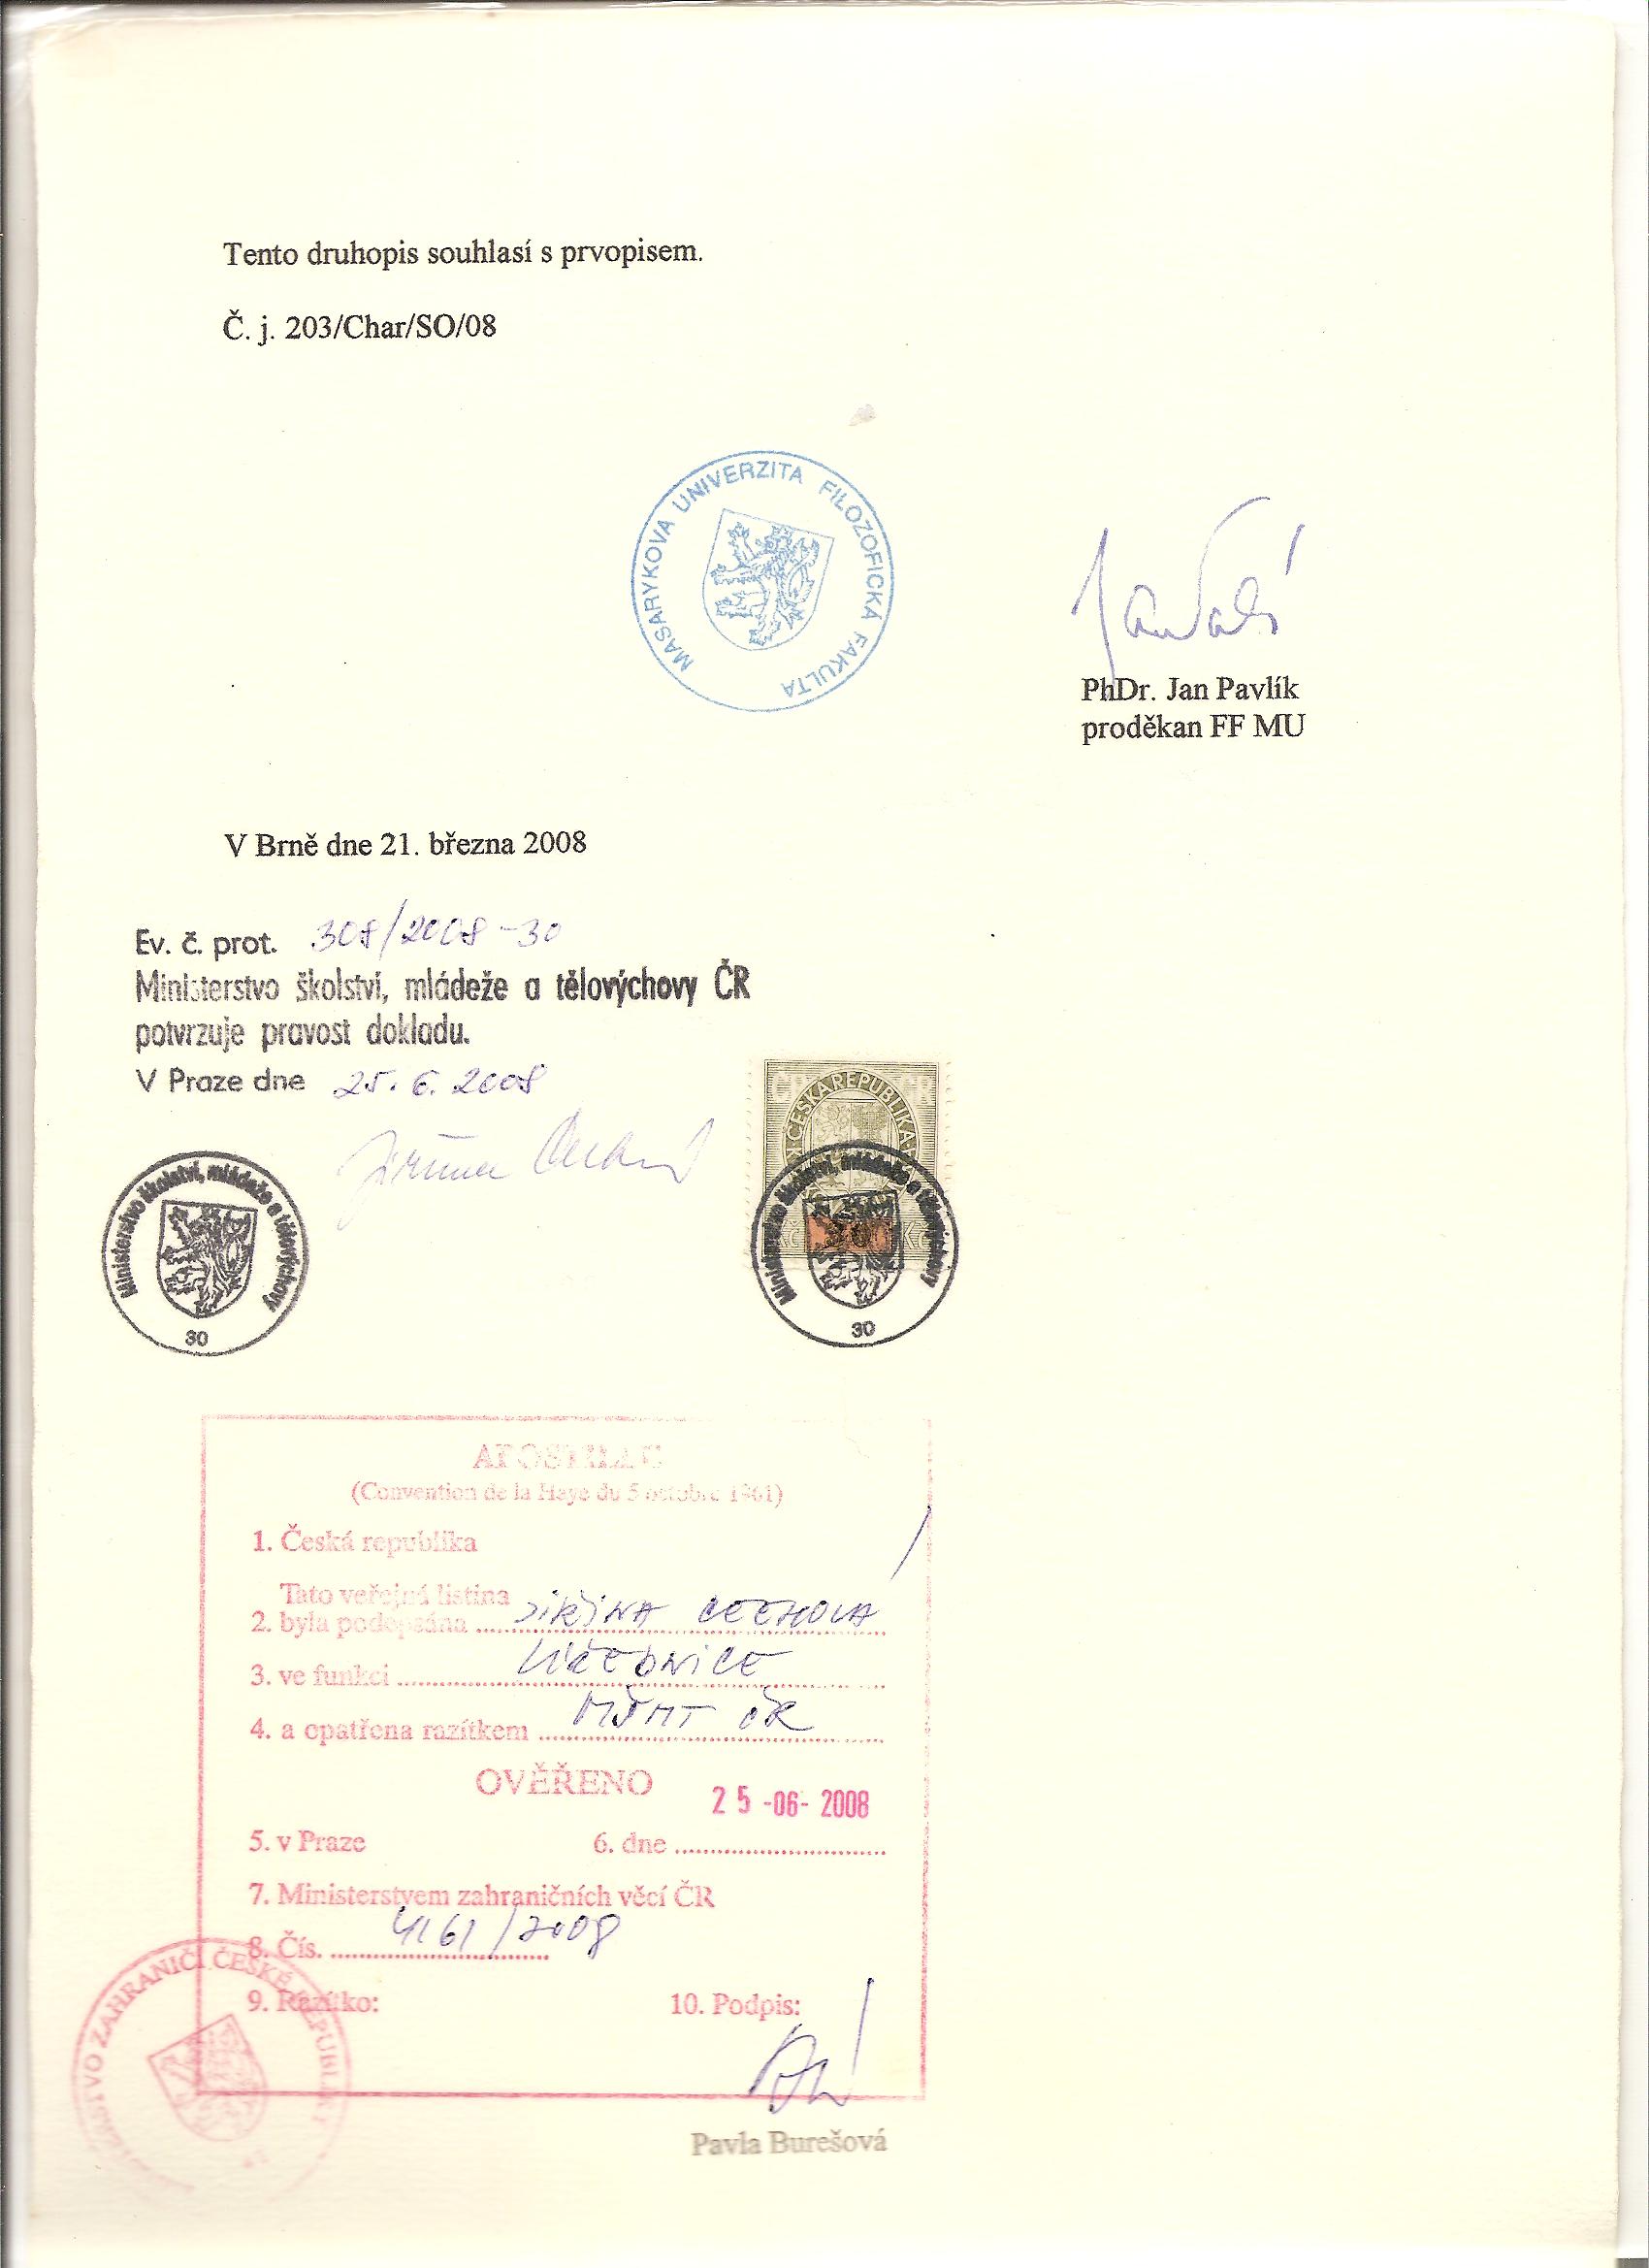 Tento druhopis souhlasí s prvopisem.
Č. j. 203/Char/SO/08
MASARYKOVA UNIVERZITA FILOZOFICKÁ FAKULTA
PhDr. Jan Pavlík
proděkan FF MU
V Brně dne 21. března 2008
Ev. č. prot. 308/2008-30
Ministerstvo školství, mládeže a tělovýchovy ČR
potvrzuje pravost dokladu.
V Praze dne 25. 6. 2008
ČESKÁ REPUBLIKA
Kč Kč
Ministerstvo školství, mládeže a tělovýchovy
30
Ministerstvo školství, mládeže a tělovýchovy
30
APOSTILLE
(Convention de la Haye du 5 octobre 1961)
1. Česká republika
Tato veřejná listina
2. byla podepsána JIŘINA ČECHOVÁ
3. ve funkci ÚŘEDNICE
4. a opatřena razítkem MŠMT ČR
OVĚŘENO
25 -06- 2008
5. v Praze 6. dne
7. Ministerstvem zahraničních věcí ČR
8. Čís. 4161/2008
9. Razítko: 10. Podpis:
ZAHRANIČÍ ČESKÉ REPUBLIKY
Pavla Burešová